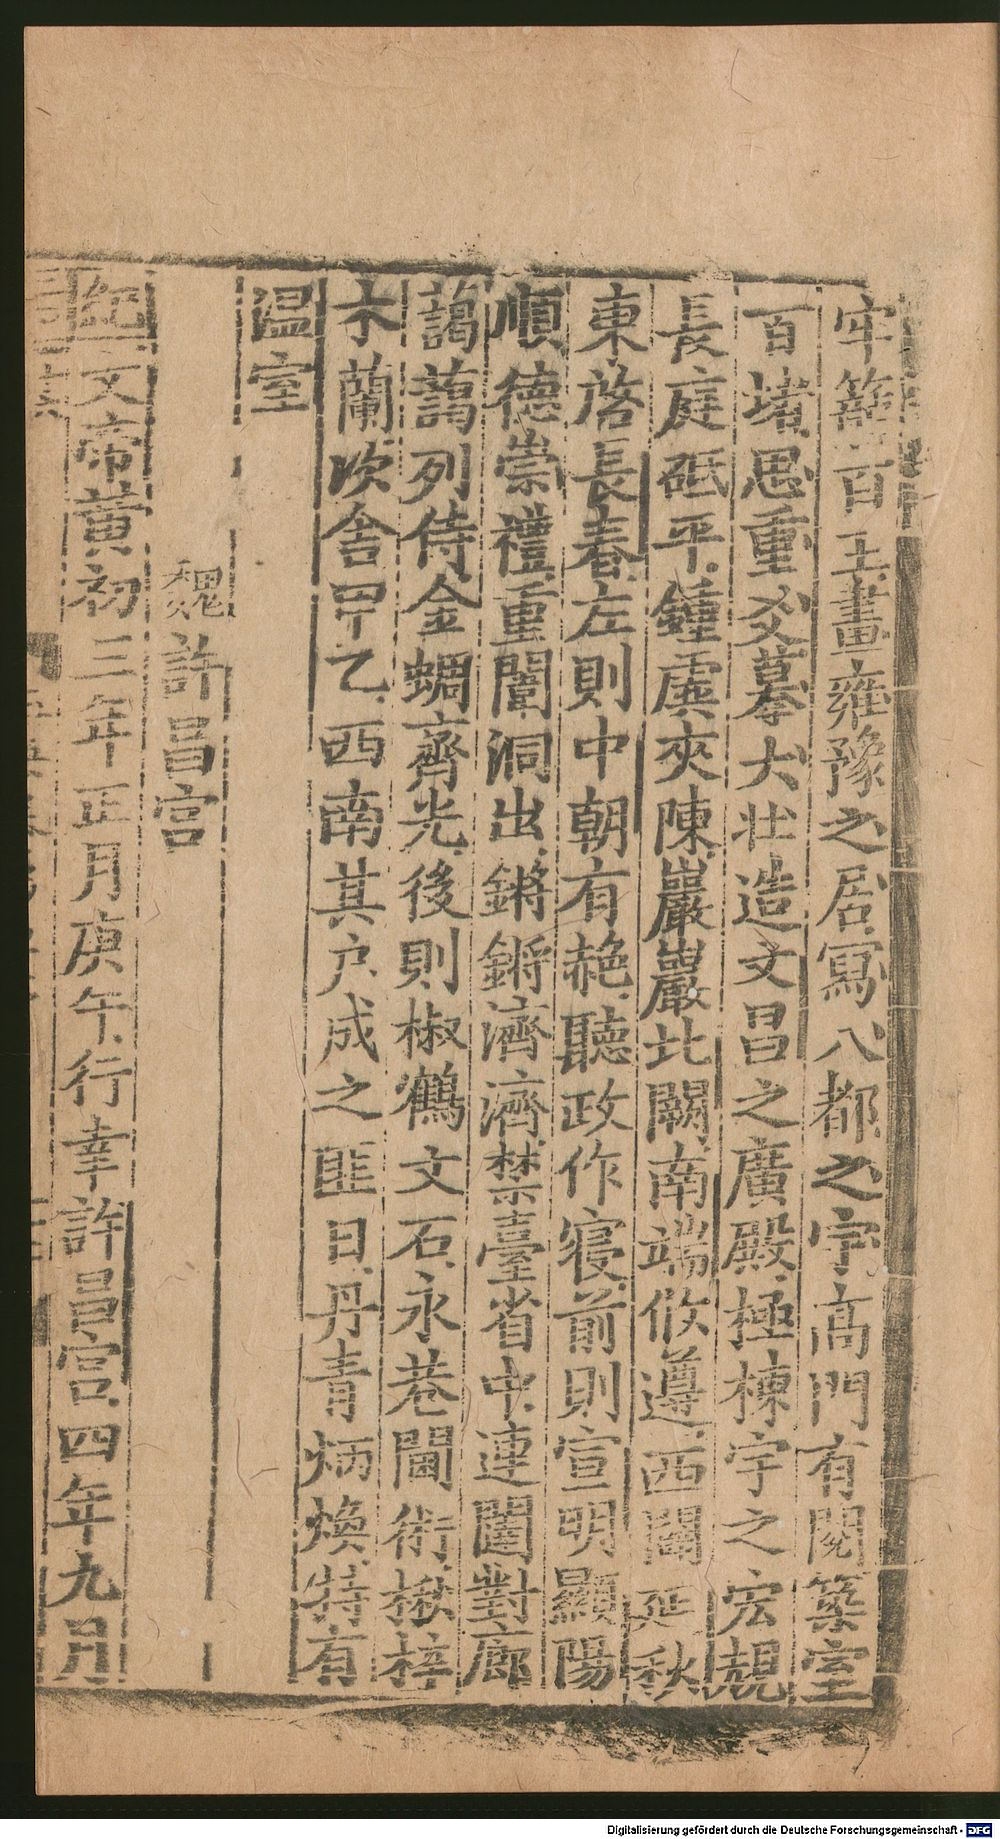 牢籠百王畫雍豫之居寫八都之宇高門有閱築室
百堵思重爻摹大壯造文昌之廣殿極棟宇之宏規
長庭砥平鍾虡夾陳巖巖北闕南端攸遵西闢延秋
東啓長春左則中朝有赩聽政作寢前則宣明顯陽
順德崇禮重闈洞出鏘鏘濟濟禁臺省中連闥對廊
藹藹列侍金蜩齊光後則椒鶴文石永巷閫術楸梓
木蘭次舍甲乙西南其户成之匪日丹青炳煥特有
温室
魏許昌宫
紀文帝黃初三年正月庚午行幸許昌宫四年九月
Digitalisierung gefördert durch die Deutsche Forschungsgemeinschaft - DFG